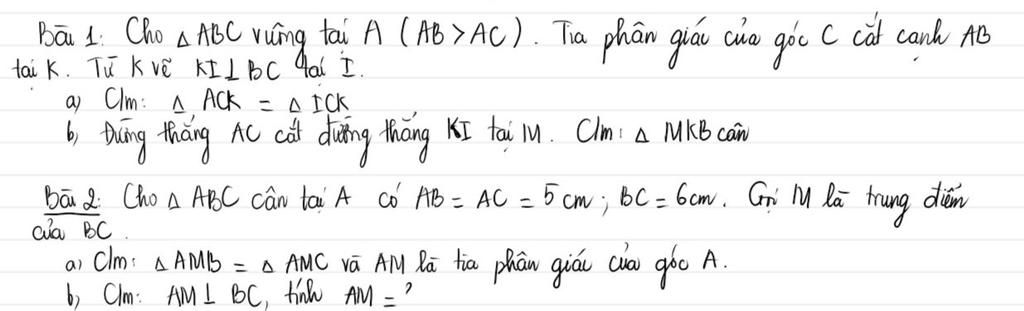 Bài 1: Cho △ ABC vuông tại A (AB > AC). Tia phân giác của góc C cắt cạnh AB
tại K. Từ K vẽ KI ⊥ BC tại I.
a) C/m: △ ACK = △ ICK
b) Đường thẳng AC cắt đường thẳng KI tại M. C/m: △ MKB cân
Bài 2: Cho △ ABC cân tại A có AB = AC = 5 cm; BC = 6cm. Gọi M là trung điểm
của BC.
a) C/m: △ AMB = △ AMC và AM là tia phân giác của góc A.
b) C/m: AM ⊥ BC, tính AM = ?